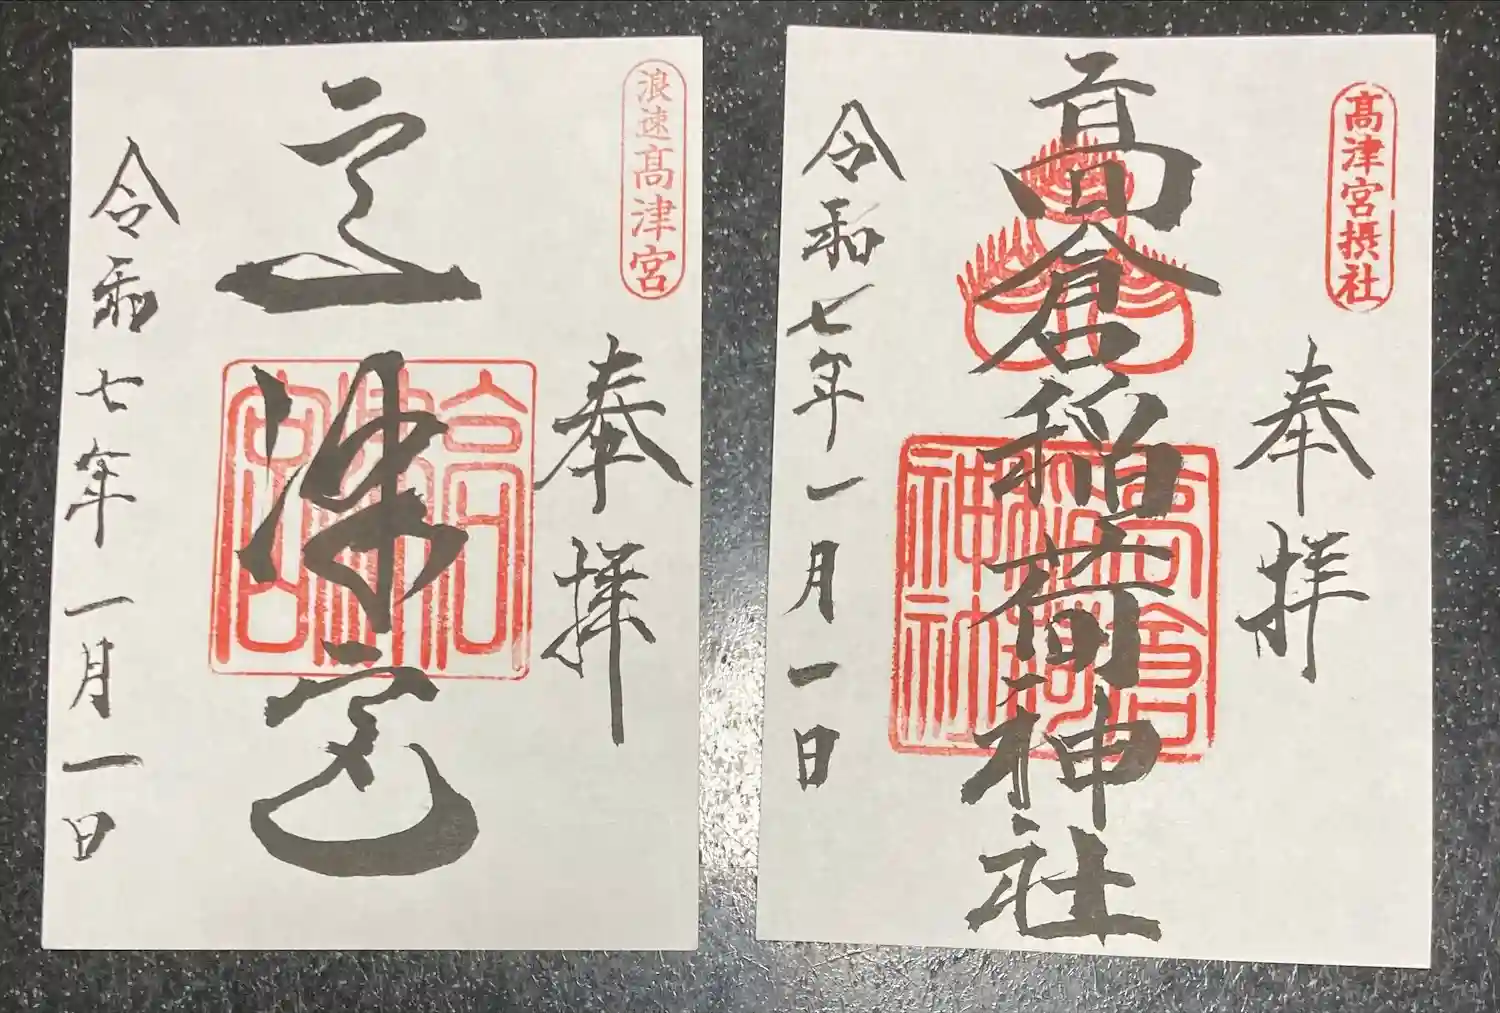 浪速高津宮
奉拝
高津宮
高津宮
令和七年一月一日
高津宮摂社
奉拝
高倉稲荷神社
高倉稲荷神社
令和七年一月一日